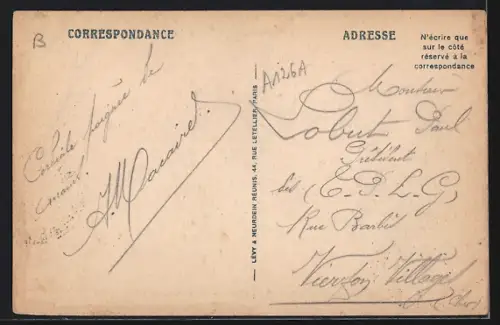 B
CORRESPONDANCE
Cordiale poignée de
mains.
A. Macaire
LÉVY & NEURDEIN RÉUNIS, 44, RUE LETELLIER, PARIS
A126A
ADRESSE
N'écrire que
sur le côté
réservé à la
correspondance
Monsieur
Lobut Paul
Président
des E. P. L. G.
Rue Barbès
Vierzon Villages
(Cher)